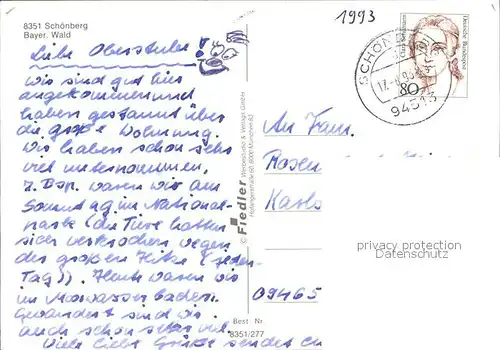 8351 Schönberg
Bayer. Wald
Liebe Oberstube!
Wir sind gut hier
angekommen und
haben gestaunt über
die große Wohnung.
Wir haben schon sehr
viel unternommen,
z. Bsp. waren wir am
Sonntag im National-
park (die Tiere hatten
sich verkrochen wegen
der großen Hitze (jeden
Tag)). Heute waren wir
im baden.
Gewandert sind wir
auch schon sehr viel.
Viele liebe Grüße sendet
© Fiedler Werbestudio & Verlags GmbH
8000 München
Best. Nr.
8351/277
1993
SCHÖN
17.-8.93
94513
Deutsche Bundespost
Clara Schumann
80
An Fam.
Rosen
Karls
09465
privacy protection
Datenschutz